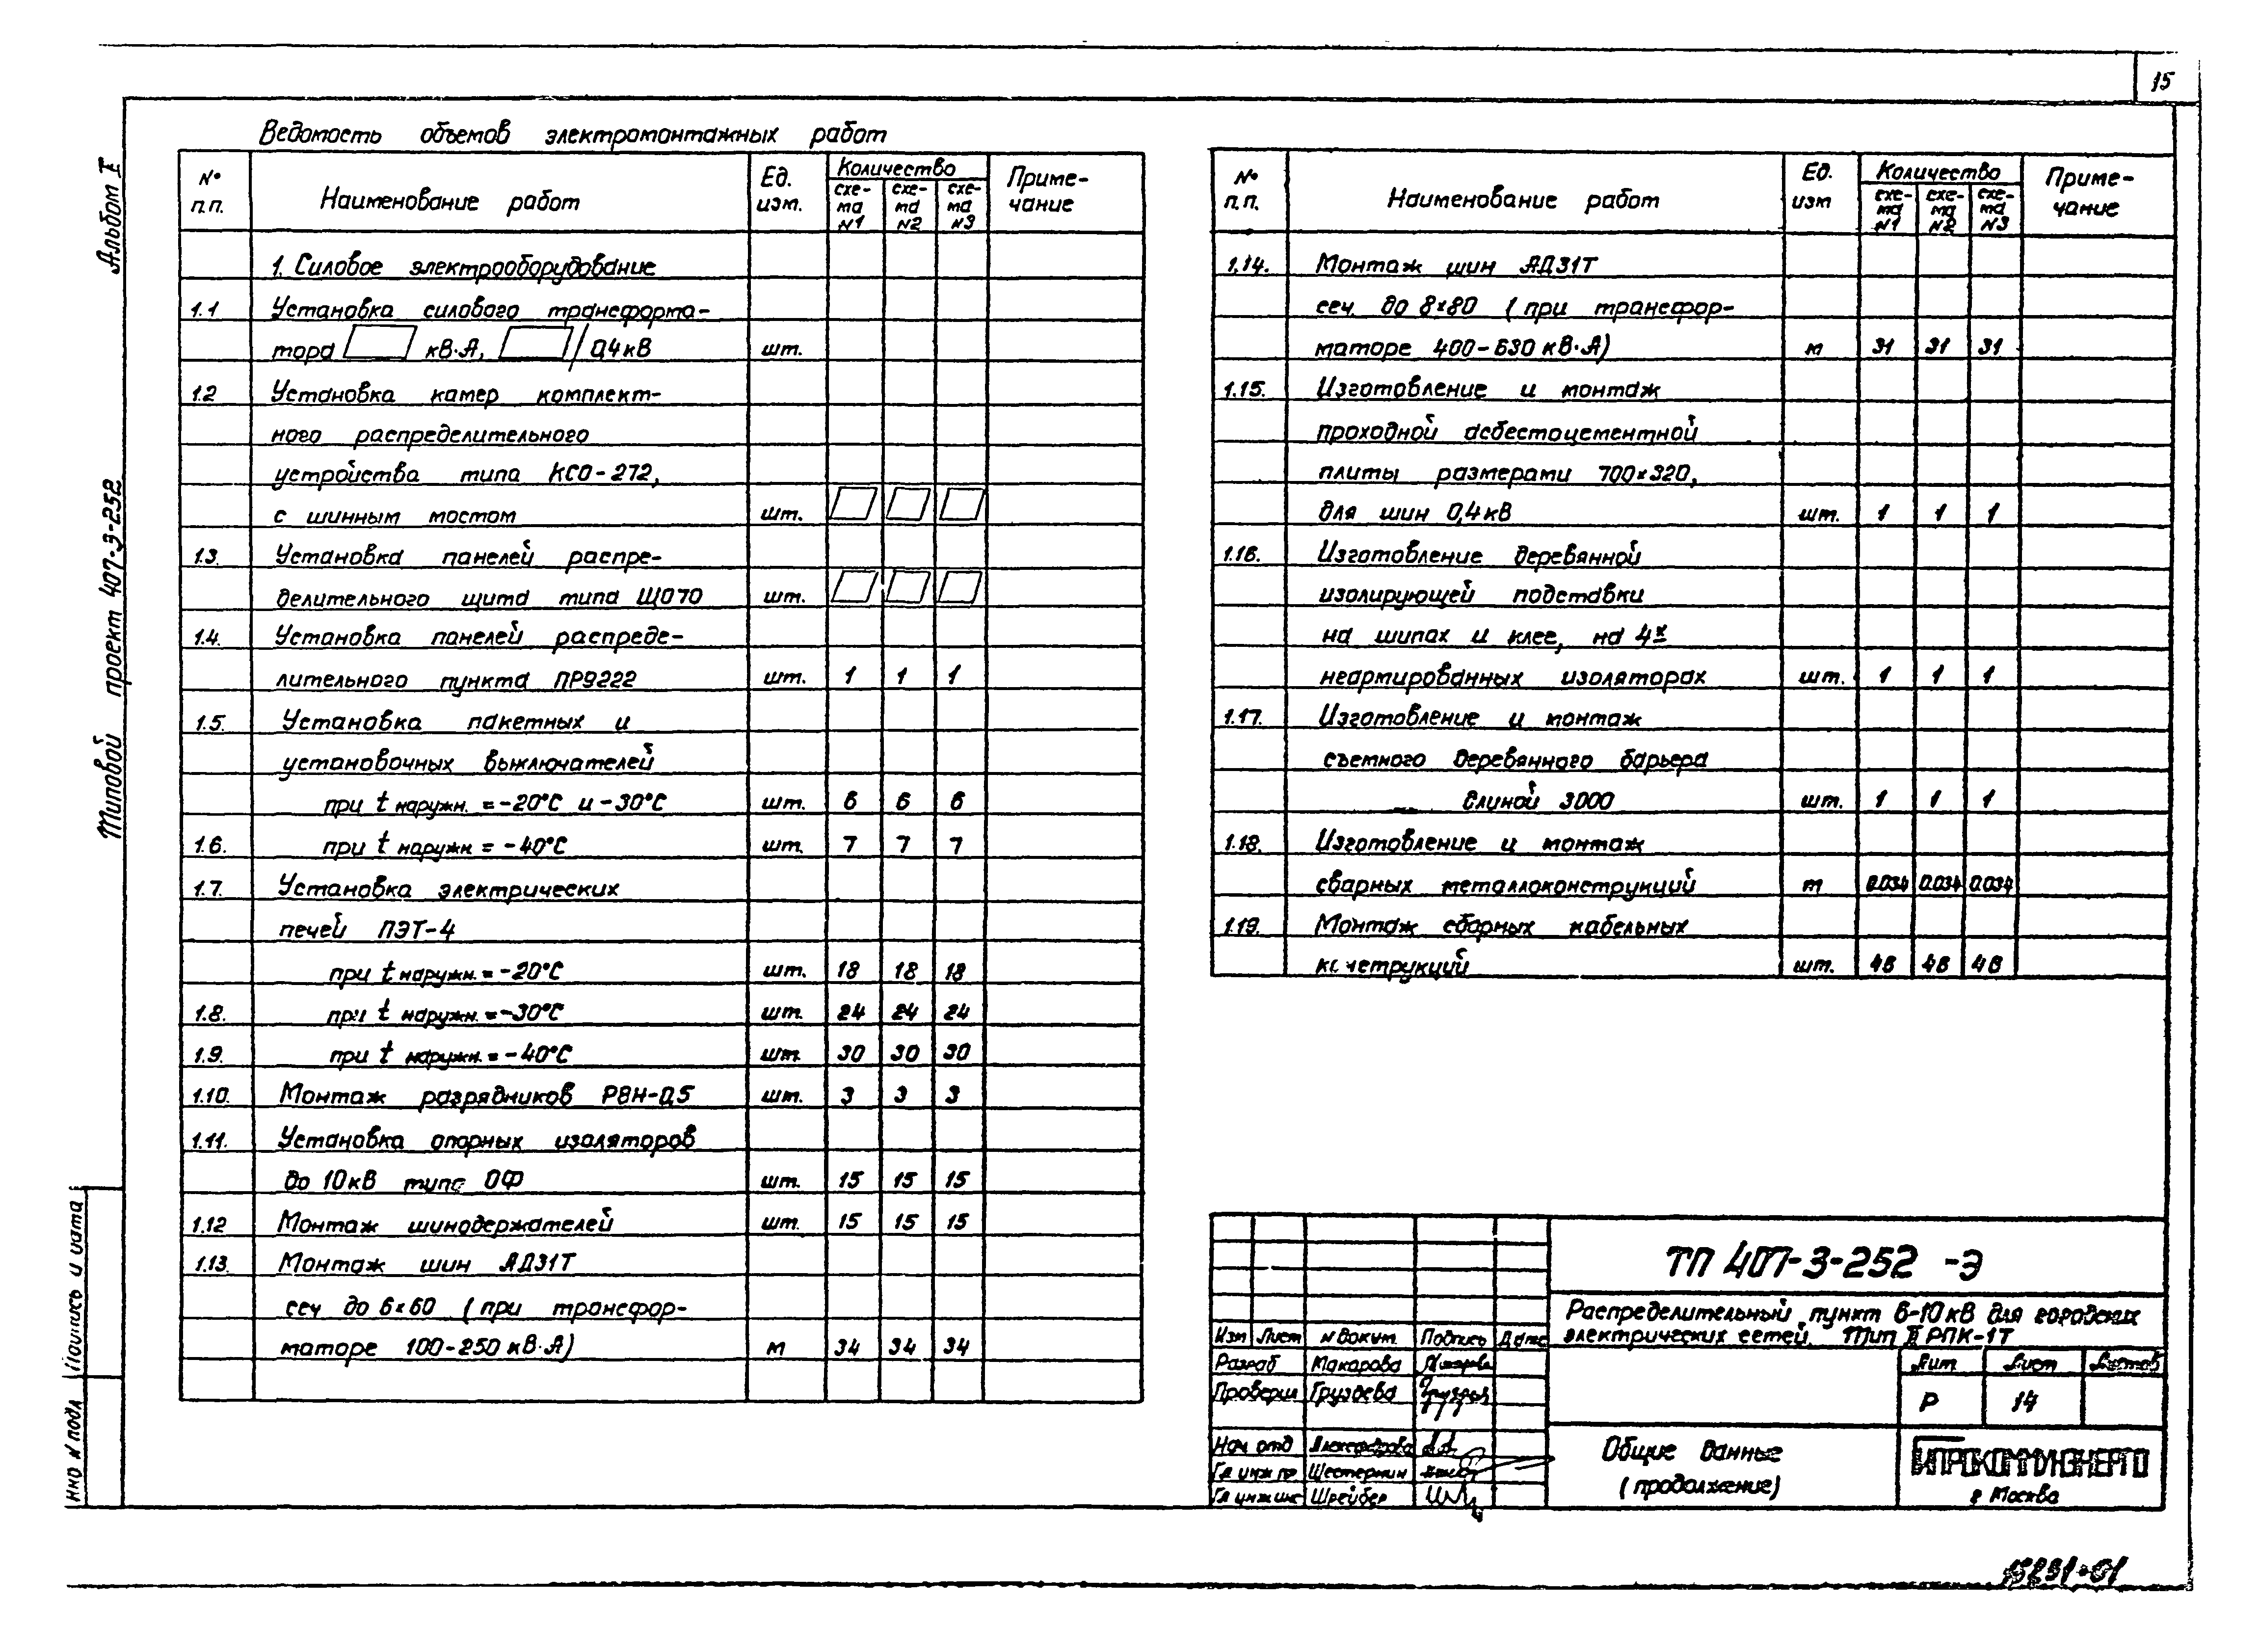 15
Ведомость объемов электромонтажных работ
№ п.п. Наименование работ Ед. изм. Количество Приме-чание
схе-ма N1 схе-ма N2 схе-ма N3
1. Силовое электрооборудование
1.1 Установка силового трансформа-
тора кВ·А, / 0,4 кВ шт.
1.2 Установка камер комплект-
ного распределительного
устройства типа КСО-272,
с шинным мостом шт.
1.3. Установка панелей распре-
делительного щита типа ЩО70 шт.
1.4. Установка панелей распреде-
лительного пункта ПР9222 шт. 1 1 1
1.5. Установка пакетных и
установочных выключателей
при t наружн. = -20°С и -30°С шт. 6 6 6
1.6. при t наружн = -40°С шт. 7 7 7
1.7. Установка электрических
печей ПЭТ-4
при t наружн. = -20°С шт. 18 18 18
1.8. при t наружн. = -30°С шт. 24 24 24
1.9. при t наружн. = -40°С шт. 30 30 30
1.10. Монтаж разрядников РВН-0,5 шт. 3 3 3
1.11. Установка опорных изоляторов
до 10 кВ типа ОФ шт. 15 15 15
1.12 Монтаж шинодержателей шт. 15 15 15
1.13. Монтаж шин АД31Т
сеч до 6×60 (при трансфор-
маторе 100-250 кВ·А) м 34 34 34
№ п.п. Наименование работ Ед. изм Количество Приме-чание
схе-ма N1 схе-ма N2 схе-ма N3
1.14. Монтаж шин АД31Т
сеч. до 8×80 (при трансфор-
маторе 400-630 кВ·А) м 31 31 31
1.15. Изготовление и монтаж
проходной асбестоцементной
плиты размерами 700×320,
для шин 0,4 кВ шт. 1 1 1
1.16. Изготовление деревянной
изолирующей подставки
на шипах и клее, на 4х
неармированных изоляторах шт. 1 1 1
1.17. Изготовление и монтаж
съемного деревянного барьера
длиной 3000 шт. 1 1 1
1.18. Изготовление и монтаж
сварных металлоконструкций т 0.034 0.034 0.034
1.19. Монтаж сборных кабельных
конструкций шт.
Альбом I
Типовой проект 407-3-252
Подпись и дата
Инв N подл
ТП 407-3-252 -Э
Распределительный пункт 6-10 кВ для городских
электрических сетей. Тип II РПК-1Т
Изм Лист N докум. Подпись Дата
Разраб Макарова
Проверил Груздева
Нач отд
Гл инж пр Шестернин
Гл инж инс Шрейбер
Лит Лист Листов
Р 14
Общие данные
(продолжение)
ГИПРОКОММУНЭНЕРГО
г Москва